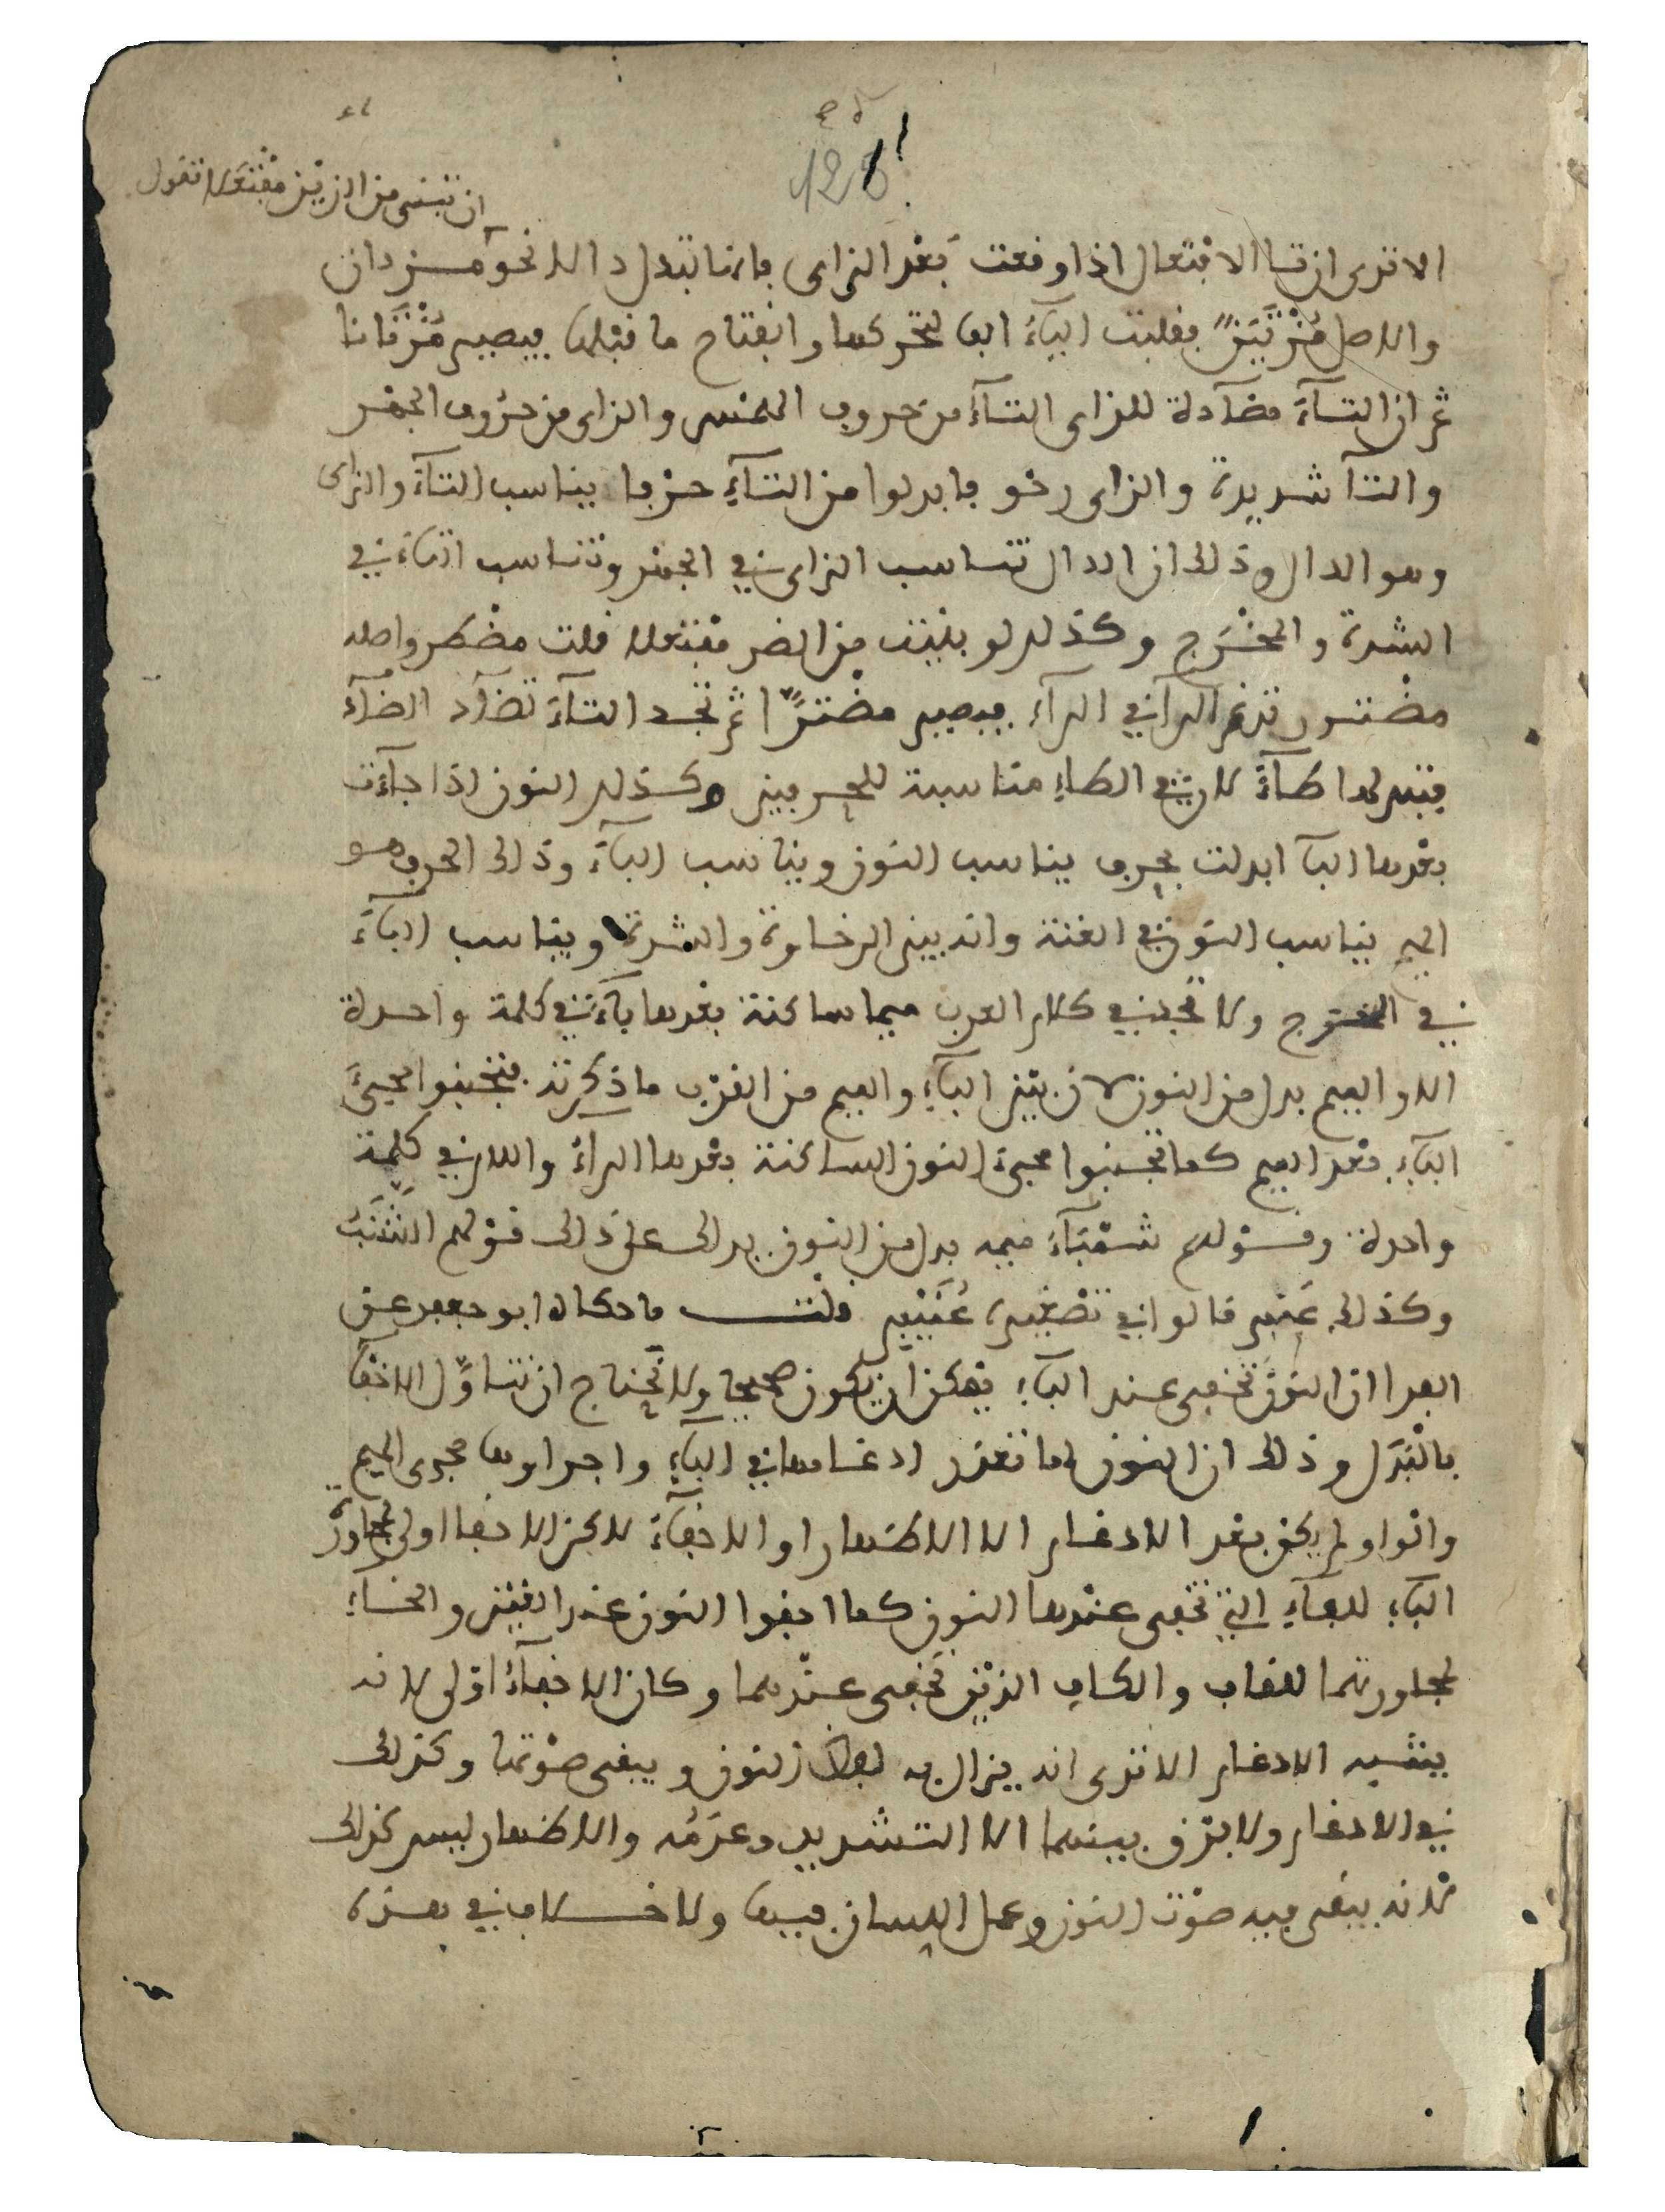 128
ان تبنى من الزين مفتعلا تقول
الا ترى ان تا الافتعال اذا وقعت بعد الزاى فانها تبدل دالا نحو مزدان
والاصل مُزْتَيَنٌ فقلبت الياءُ الفا لتحركها وانفتاح ما قبلها فيصير مُزْتَانا
ثم ان التآءَ مضآدة للزاى التآءُ من حروف الهمس والزاى من حرُوف الجهر
والتآ شديدة والزاى رخو فابدلوا من التآءِ حرْفا يناسب التآءَ والزاى
وهو الدال وذلك ان الدال تناسب الزاى في الجهر وتناسب التاءَ في
الشدة والمخْرَج وكذلك لو بنيت من الضر مفتعلا قلت مضطر واصله
مضْترر تدغم الرآ في الرآءِ فيصير مضْترًّا ثم تجد التآءَ تضآد الضآدَ
فتبدلها طآءً لان في الطاءِ مناسبة للحرفين وكذلك النون اذا جاءَت
بعْدها البآ ابدلت بحرف يناسب النوْن ويناسب البآءَ وذلك الحرف هو
الميم يناسب النوْن في الغنة وانه بين الرخاوة والشدة ويناسب البآءَ
في المخرج ولا تجد في كلام العرب ميما ساكنة بعْدها بآءٌ في كلمة واحدة
الا والميم بدل من النون لان بيْن البآءِ والميم من القرْب ما ذكرته فتجنبوا مجىءَ
البآءِ بعْد الميم كما تجنبوا مجىءَ النون الساكنة بعْدها الراءُ واللام في كلمة
واحدة وقوْلهم شمْبَآءَ ميمه بدل من النون يدلك على ذلك قوْلهم الشَّنَبُ
وكذلك عَنبر قالوا في تصْغيره عُنَيْبر قلْت ما حكاه ابو جعفر عن
الفرا ان النوْنَ تخفى عند البآءِ يمْكن ان يكون صحيحا ولا تحْتاج ان تتاوّل الاخفآ
بالْبَدَل وذلك ان النون لما تعذر ادغامها في البآءِ واجراوها مجرى الميم
والواو لم يكن بعد الادغام الا الاظهار او الاخفآءَ لاكن الاخفا اولى لمجاورة
البآءِ للفآءِ التي تخفى عنْدها النون كما اخفوا النون عند الغيْن والخآءِ
لمجاورتهما للقاف والكاف الذيْن تخفى عنْدهما وكان الاخفآءُ اوْلى لانه
يشبه الادغام الا ترى انه يزال به لفظ النون ويبقى صوْتها وكذلك
في الادغام ولا فرْق بينهما الا التشديد وعدَمُه والاظهار ليس كذلك
لانه يبقى فيه صوْت النون وعمل اللسان فيها ولا خلاف في هذه